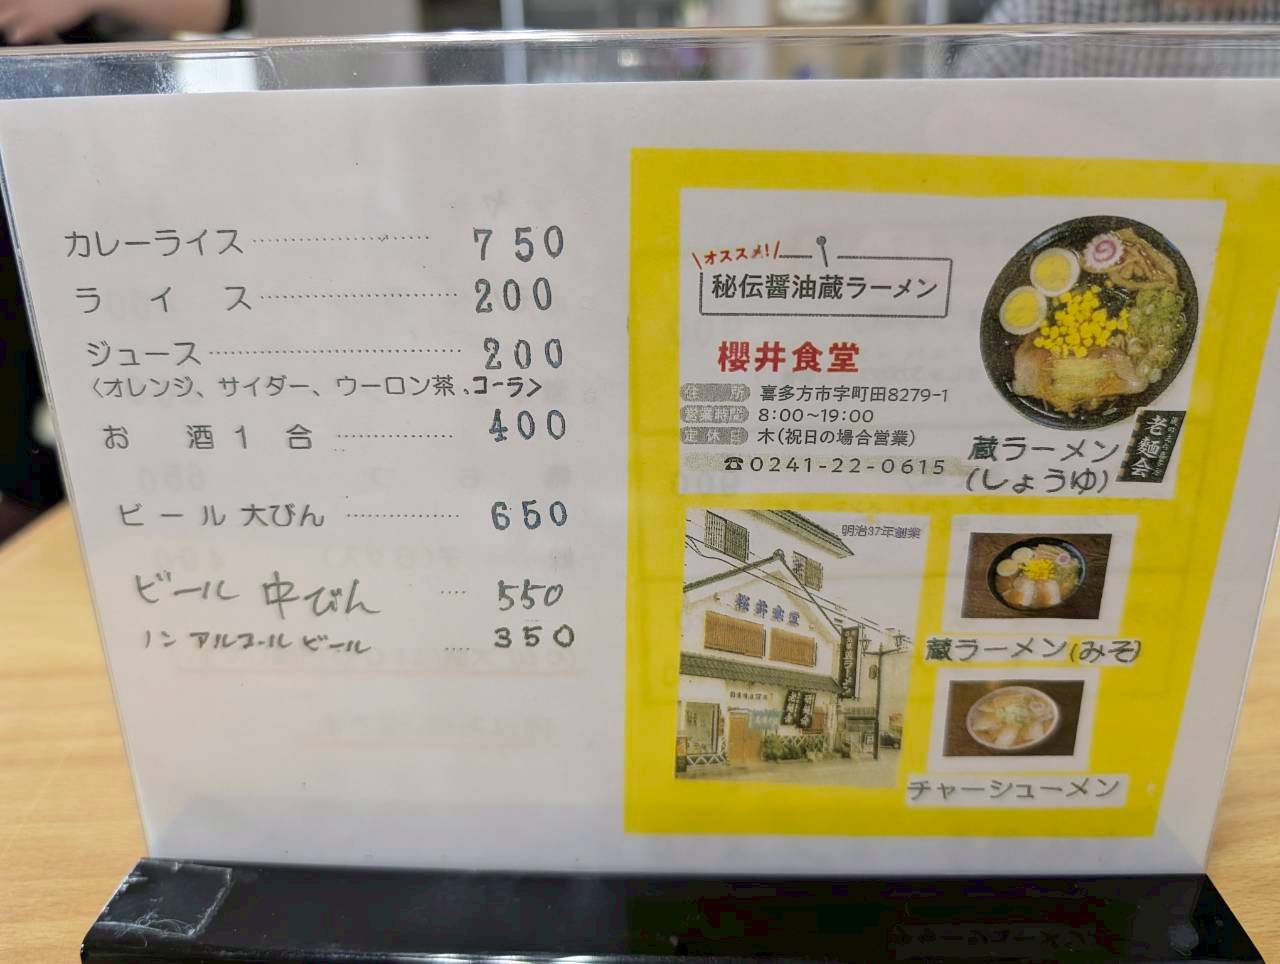 カレーライス ………… 750
ライス ………… 200
ジュース ………… 200
〈オレンジ、サイダー、ウーロン茶、コーラ〉
お酒1合 ………… 400
ビール 大びん ………… 650
ビール 中びん …… 550
ノンアルコールビール …… 350
オススメ!
秘伝醤油蔵ラーメン
櫻井食堂
住所 喜多方市字町田8279-1
営業時間 8:00~19:00
定休日 木(祝日の場合営業)
☎0241-22-0615
老麺会
蔵ラーメン
(しょうゆ)
明治37年創業
桜井食堂
蔵ラーメン(みそ)
チャーシューメン